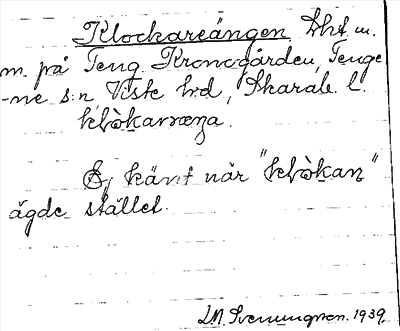 Klockareängen, Lht m.
m. på Teng Kronogården, Tenge
-ne s:n, Viste hd, Skarab. l.
klòkaræŋa.
Ej känt när "klòkan"
ägde stället.
I.M. Svenungson. 1939.